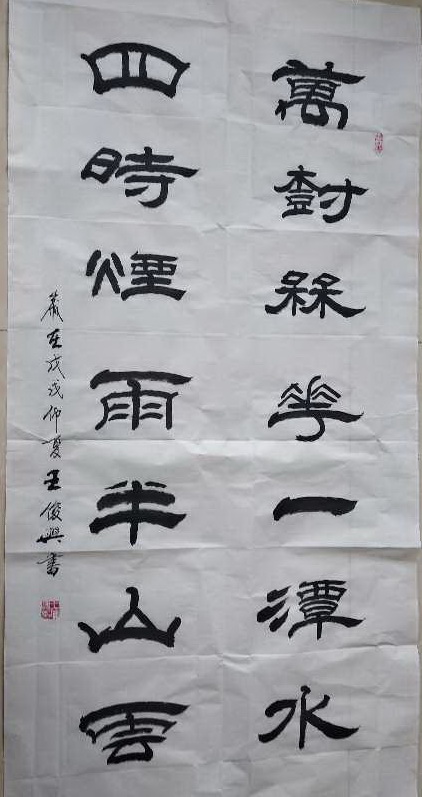 萬樹槑華一潭水
四時煙雨半山雲
歲在戊戌仲夏王俊興書